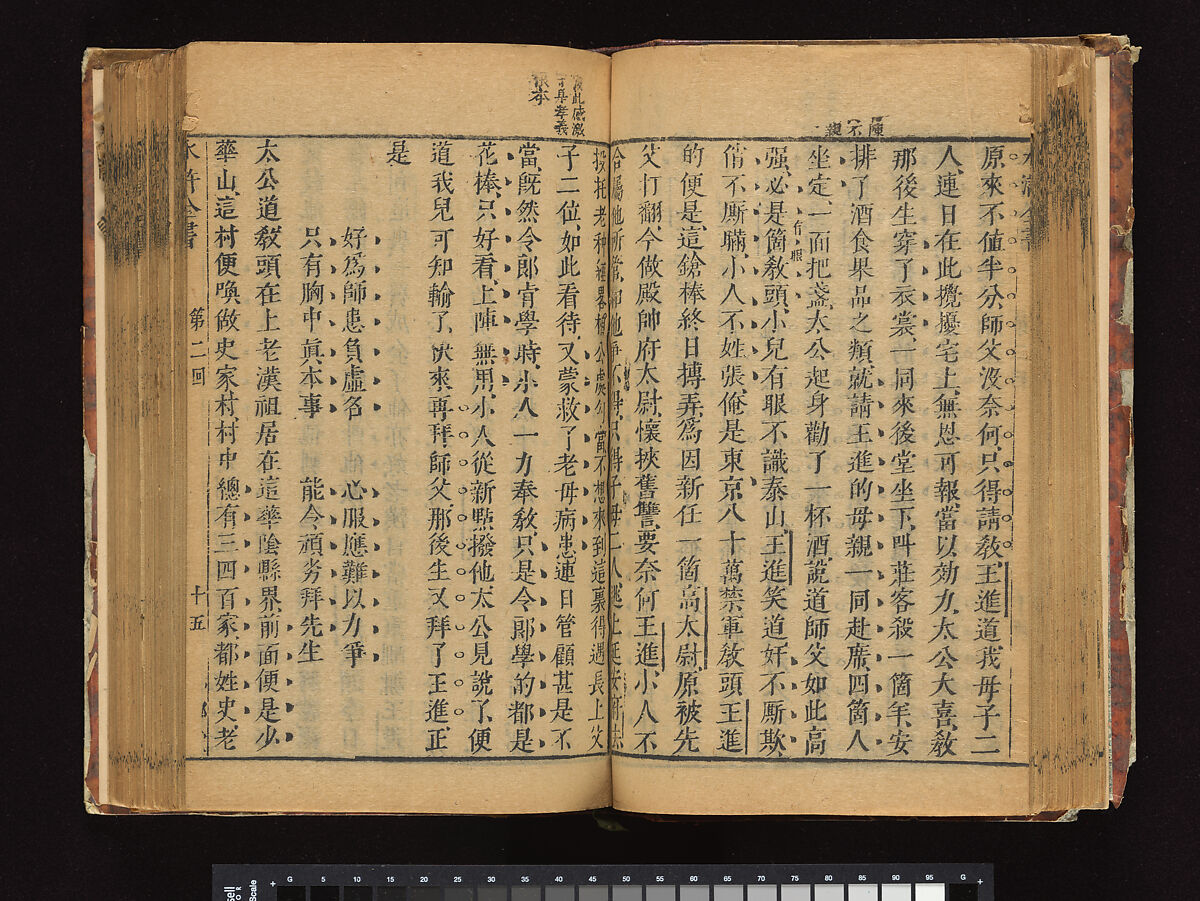 原來不値半分師父沒奈何只得請敎王進道我母子二
人連日在此攪擾宅上無恩可報當以効力太公大喜敎
那後生穿了衣裳一同來後堂坐下叫莊客殺一箇羊安
排了酒食果品之類就請王進的母親一同赴席四箇人
坐定一面把盞太公起身勸了一杯酒說道師父如此高
强必是箇敎頭小兒有眼不識泰山王進笑道奸不厮欺
俏不厮瞞小人不姓張俺是東京八十萬禁軍敎頭王進
的便是這鎗棒終日搏弄爲因新任一箇高太尉原被先
父打翻今做殿帥府太尉懷挾舊讐要奈何王進小人不
合屬他所管和他爭不得只得子母二人逃上延安府去
有眼
彼此感激
可具孝義
根本
投托老种經畧相公處勾當不想來到這裏得遇長上父
子二位如此看待又蒙救了老母病患連日管顧甚是不
當旣然令郞肯學時小人一力奉敎只是令郞學的都是
花棒只好看上陣無用小人從新㸃撥他太公見說了便
道我兒可知輸了快來再拜師父那後生又拜了王進正
是
好爲師患負虛名 心服應難以力爭
只有胸中眞本事 能令頑劣拜先生
太公道敎頭在上老漢祖居在這華陰縣界前面便是少
華山這村便喚做史家村村中總有三四百家都姓史老
水滸全書 第二回 十五
G 5 10 15 20 25 30 35 40 45 50 55 60 65 70 75 80 85 90 95 G